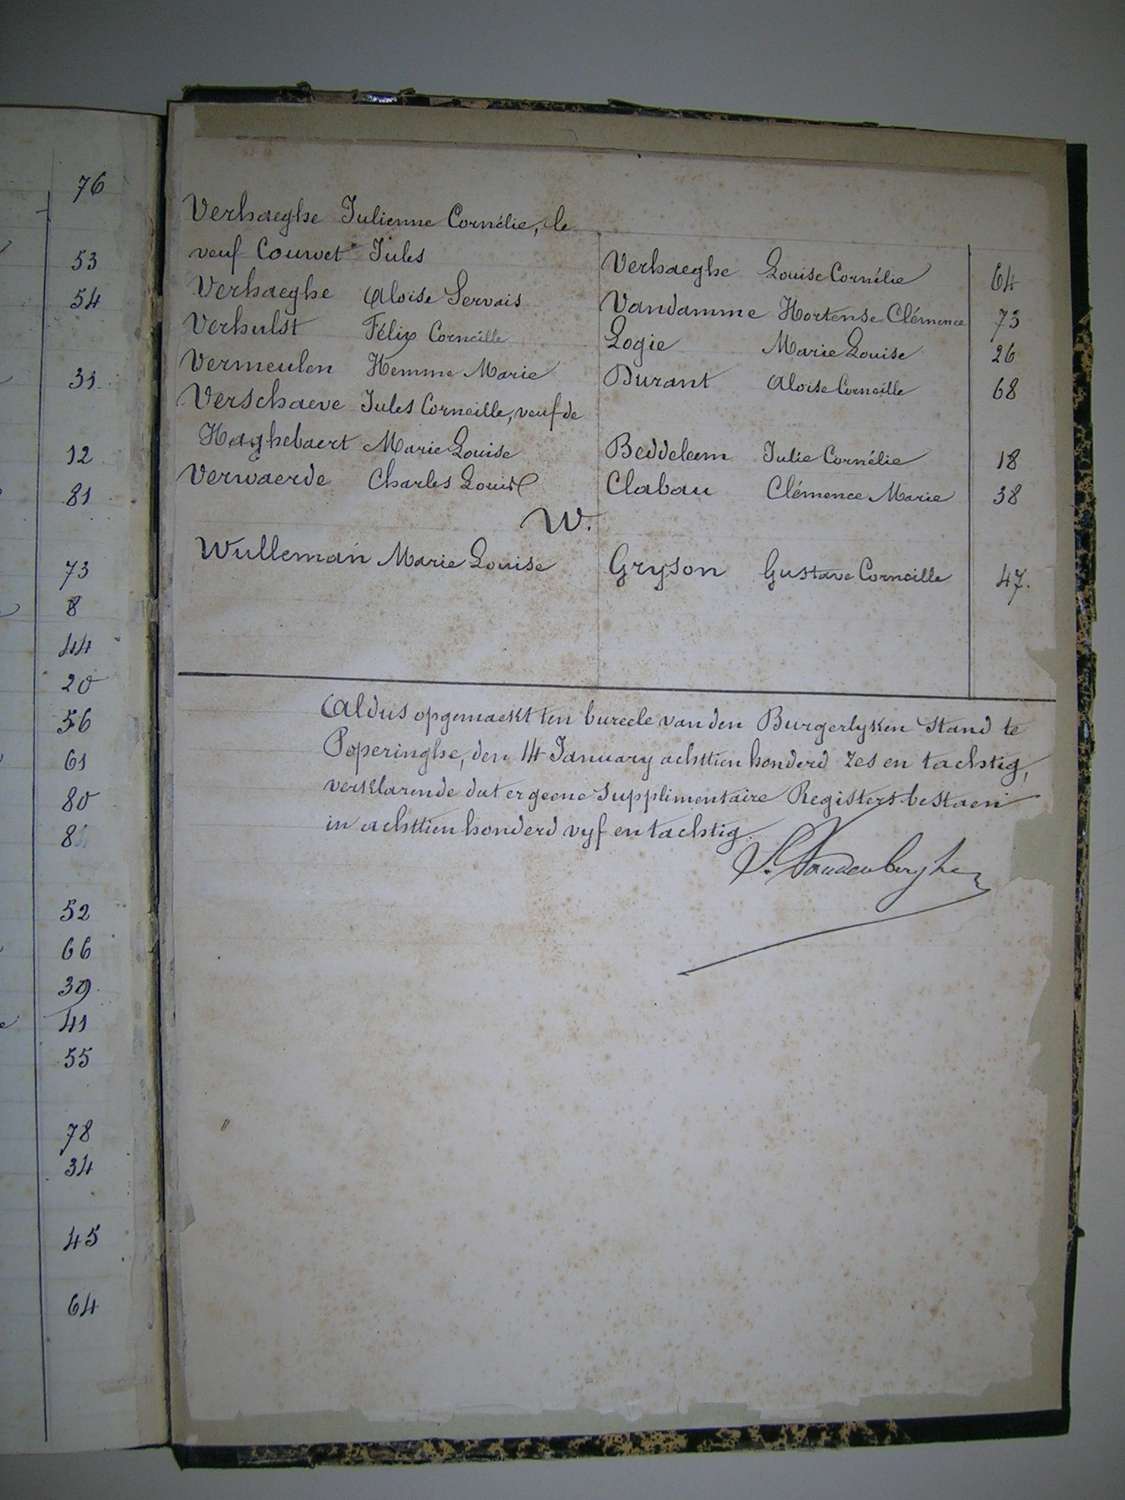 76
53
54
31
12
81
73
8
44
20
56
61
80
8
52
66
39
41
55
78
34
45
64
Verhaeghe Julienne Cornélie, le
veuf Couvet Jules Verhaeghe Louise Cornélie 64
Verhaeghe Aloise Servais Vandamme Hortense Clémence 73
Verhulst Félix Corneille Logie Marie Louise 26
Vermeulen Hemme Marie Durant Aloise Corneille 68
Verschaeve Jules Corneille, veuf de
Haghebaert Marie Louise Beddeleem Julie Cornélie 18
Verwaerde Charles Louis Clabau Clémence Marie 38
W.
Wulleman Marie Louise Gryson Gustave Corneille 47.
Aldus opgemaekt ten bureele van den Burgerlyken Stand te
Poperinghe, den 14 January achttien honderd zes en tachtig,
verklarende dat er geene Supplimentaire Registers bestaen
in achttien honderd vyf en tachtig.
Vandenberghe